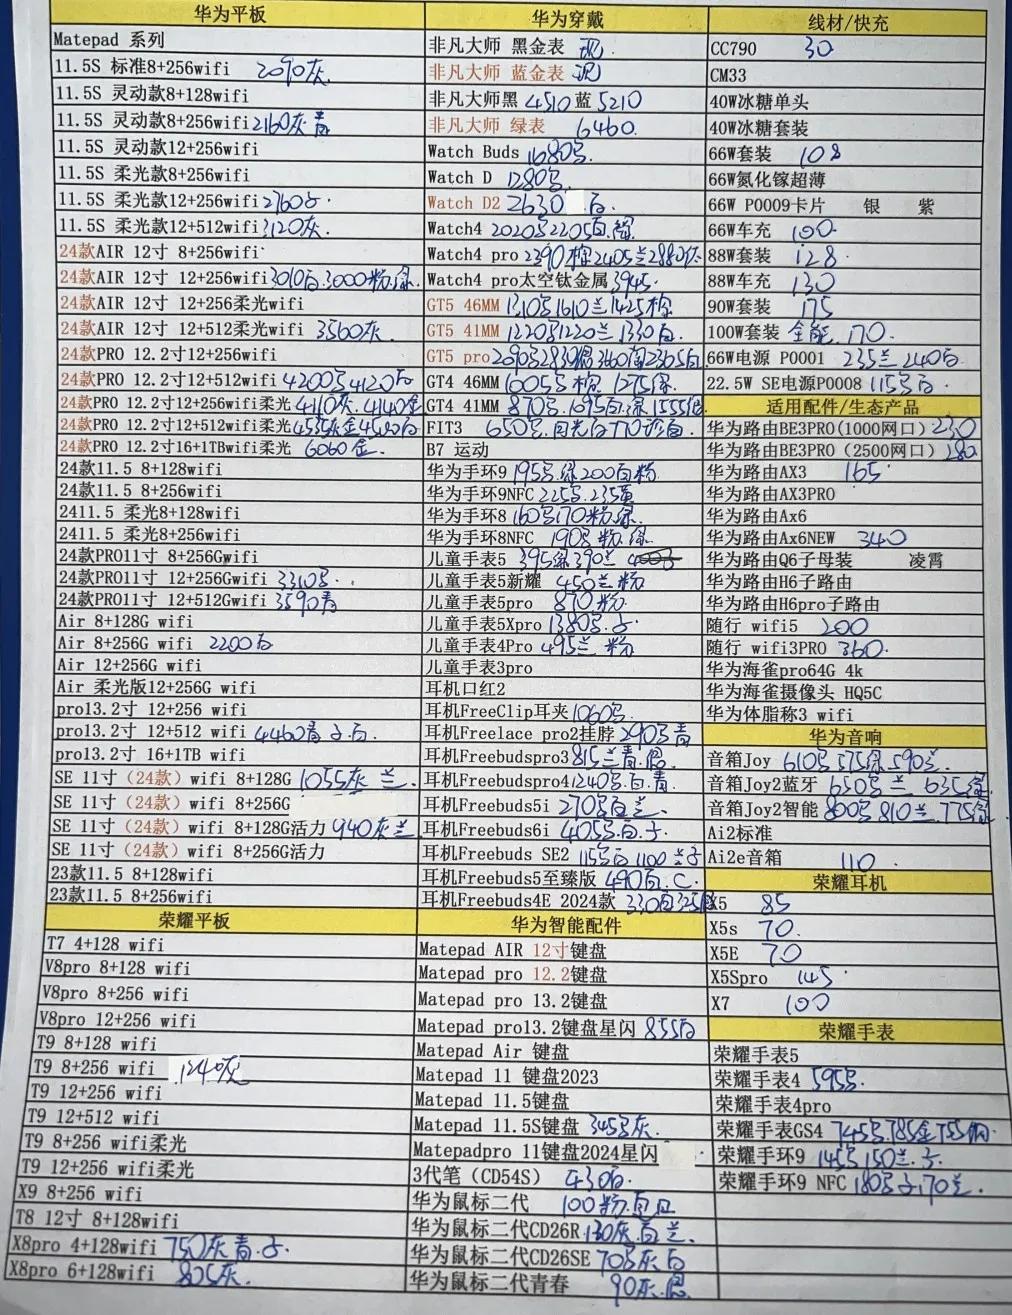 华为平板
Matepad 系列
11.5S 标准8+256wifi 2090灰
11.5S 灵动款8+128wifi
11.5S 灵动款8+256wifi 2160灰青
11.5S 灵动款12+256wifi
11.5S 柔光款8+256wifi
11.5S 柔光款12+256wifi 2760
11.5S 柔光款12+512wifi 3120灰
24款AIR 12寸 8+256wifi
24款AIR 12寸 12+256wifi 3010白.3000粉.绿
24款AIR 12寸 12+256柔光wifi
24款AIR 12寸 12+512柔光wifi 3560灰
24款PRO 12.2寸12+256wifi
24款PRO 12.2寸12+512wifi 4200 4120
24款PRO 12.2寸12+256wifi柔光 4110灰.4140金
24款PRO 12.2寸12+512wifi柔光
24款PRO 12.2寸16+1TBwifi柔光 6060金.
24款11.5 8+128wifi
24款11.5 8+256wifi
2411.5 柔光8+128wifi
2411.5 柔光8+256wifi
24款PRO11寸 8+256Gwifi
24款PRO11寸 12+256Gwifi 3310
24款PRO11寸 12+512Gwifi 3590青
Air 8+128G wifi
Air 8+256G wifi 2200白
Air 12+256G wifi
Air 柔光版12+256G wifi
pro13.2寸 12+256 wifi
pro13.2寸 12+512 wifi 4460青
pro13.2寸 16+1TB wifi
SE 11寸（24款）wifi 8+128G 1055灰 兰.
SE 11寸（24款）wifi 8+256G
SE 11寸（24款）wifi 8+128G活力 940灰兰
SE 11寸（24款）wifi 8+256G活力
23款11.5 8+128wifi
23款11.5 8+256wifi
荣耀平板
T7 4+128 wifi
V8pro 8+128 wifi
V8pro 8+256 wifi
V8pro 12+256 wifi
T9 8+128 wifi
T9 8+256 wifi 1240灰
T9 12+256 wifi
T9 12+512 wifi
T9 8+256 wifi柔光
T9 12+256 wifi柔光
X9 8+256 wifi
T8 12寸 8+128wifi
X8pro 4+128wifi 750灰青
X8pro 6+128wifi 805灰.
华为穿戴
非凡大师 黑金表 现
非凡大师 蓝金表 现
非凡大师黑 4510 蓝 5210
非凡大师 绿表 6460
Watch Buds 1680
Watch D 1280
Watch D2 2630 白.
Watch4 2020 2205
Watch4 pro 2290棕2405兰2880
Watch4 pro太空钛金属 3945.
GT5 46MM 1310 1610兰1425棕
GT5 41MM 1220 1220兰1330白.
GT5 pro
GT4 46MM 1005 棕 1275绿.
GT4 41MM 870 1095白.绿 1555
FIT3 650
B7 运动
华为手环9 195 绿 200白粉
华为手环9NFC 225 235黄
华为手环8 160 170粉.绿.
华为手环8NFC 190 粉.绿.
儿童手表5 395绿390兰
儿童手表5新耀 450兰粉
儿童手表5pro 870粉
儿童手表5Xpro 1380
儿童手表4Pro 495兰 粉
儿童手表3pro
耳机口红2
耳机FreeClip耳夹 1060
耳机Freelace pro2挂脖 290 青
耳机Freebudspro3 815兰青.银
耳机Freebudspro4 1240 白.青.
耳机Freebuds5i 270 白兰.
耳机Freebuds6i 405 白.
耳机Freebuds SE2 115 白 1100 兰
耳机Freebuds5至臻版 490白.C.
耳机Freebuds4E 2024款 330白325
华为智能配件
Matepad AIR 12寸键盘
Matepad pro 12.2键盘
Matepad pro 13.2键盘
Matepad pro13.2键盘星闪 855白
Matepad Air 键盘
Matepad 11 键盘2023
Matepad 11.5键盘
Matepad 11.5S键盘 345 灰.
Matepadpro 11键盘2024星闪
3代笔（CD54S） 430白.
华为鼠标二代 100粉
华为鼠标二代CD26R 130灰.白.兰.
华为鼠标二代CD26SE 70 灰.白
华为鼠标二代青春 90灰.
线材/快充
CC790 30
CM33
40W冰糖单头
40W冰糖套装
66W套装 108
66W氮化镓超薄
66W P0009卡片 银 紫
66W车充 100
88W套装 128
88W车充 130
90W套装 175
100W套装 全能 170.
66W电源 P0001 235兰240白.
22.5W SE电源P0008 115 白.
适用配件/生态产品
华为路由BE3PRO(1000网口) 230
华为路由BE3PRO（2500网口) 280
华为路由AX3 165
华为路由AX3PRO
华为路由Ax6
华为路由Ax6NEW 340
华为路由Q6子母装 凌霄
华为路由H6子路由
华为路由H6pro子路由
随行 wifi5 200
随行 wifi3PRO 360.
华为海雀pro64G 4k
华为海雀摄像头 HQ5C
华为体脂称3 wifi
华为音响
音箱Joy 610 575绿590兰
音箱Joy2蓝牙 650 兰 635绿
音箱Joy2智能 800 810兰 775绿
Ai2标准
Ai2e音箱 110
荣耀耳机
X5 85
X5s 70.
X5E 70
X5Spro 145
X7 100
荣耀手表
荣耀手表5
荣耀手表4 595
荣耀手表4pro
荣耀手表GS4 745 785金755
荣耀手环9 145 150兰.
荣耀手环9 NFC 180 170兰.